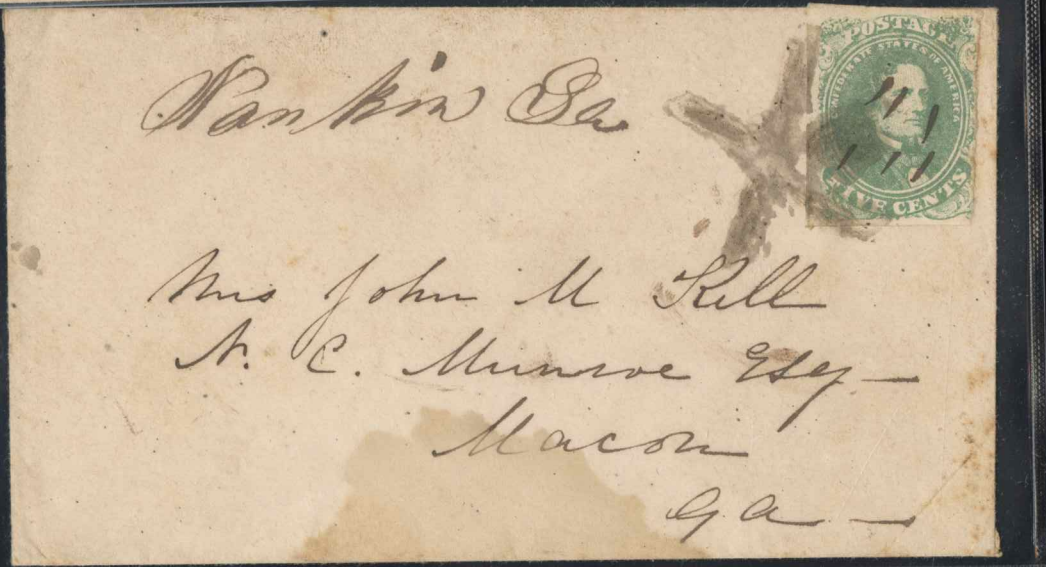 Nankin Ga
POSTAGE
CONFEDERATE STATES OF AMERICA
FIVE CENTS
Mrs John M Kell
N. C. Munroe Esq —
Macon
Ga —